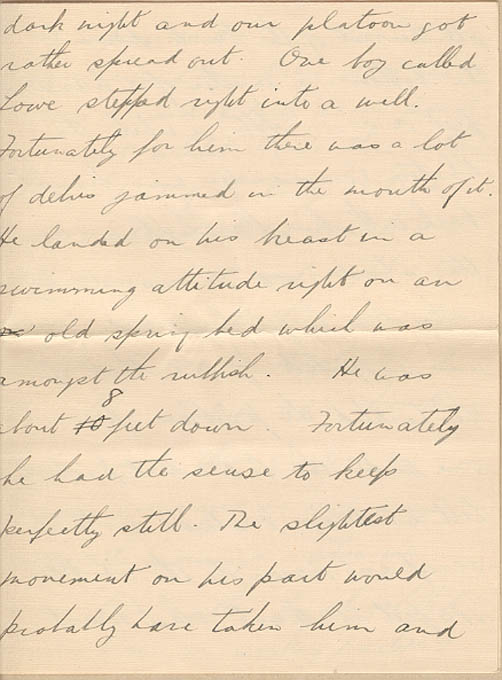 dark night and our platoon got
rather spread out. One boy called
Lowe stepped right into a well.
Fortunately for him there was a lot
of debris jammed in the mouth of it.
He landed on his breast in a
swimming attitude right on an
old spring bed which was
amongst the rubbish. He was
about 8 feet down. Fortunately
he had the sense to keep
perfectly still. The slightest
movement on his part would
probably have taken him and